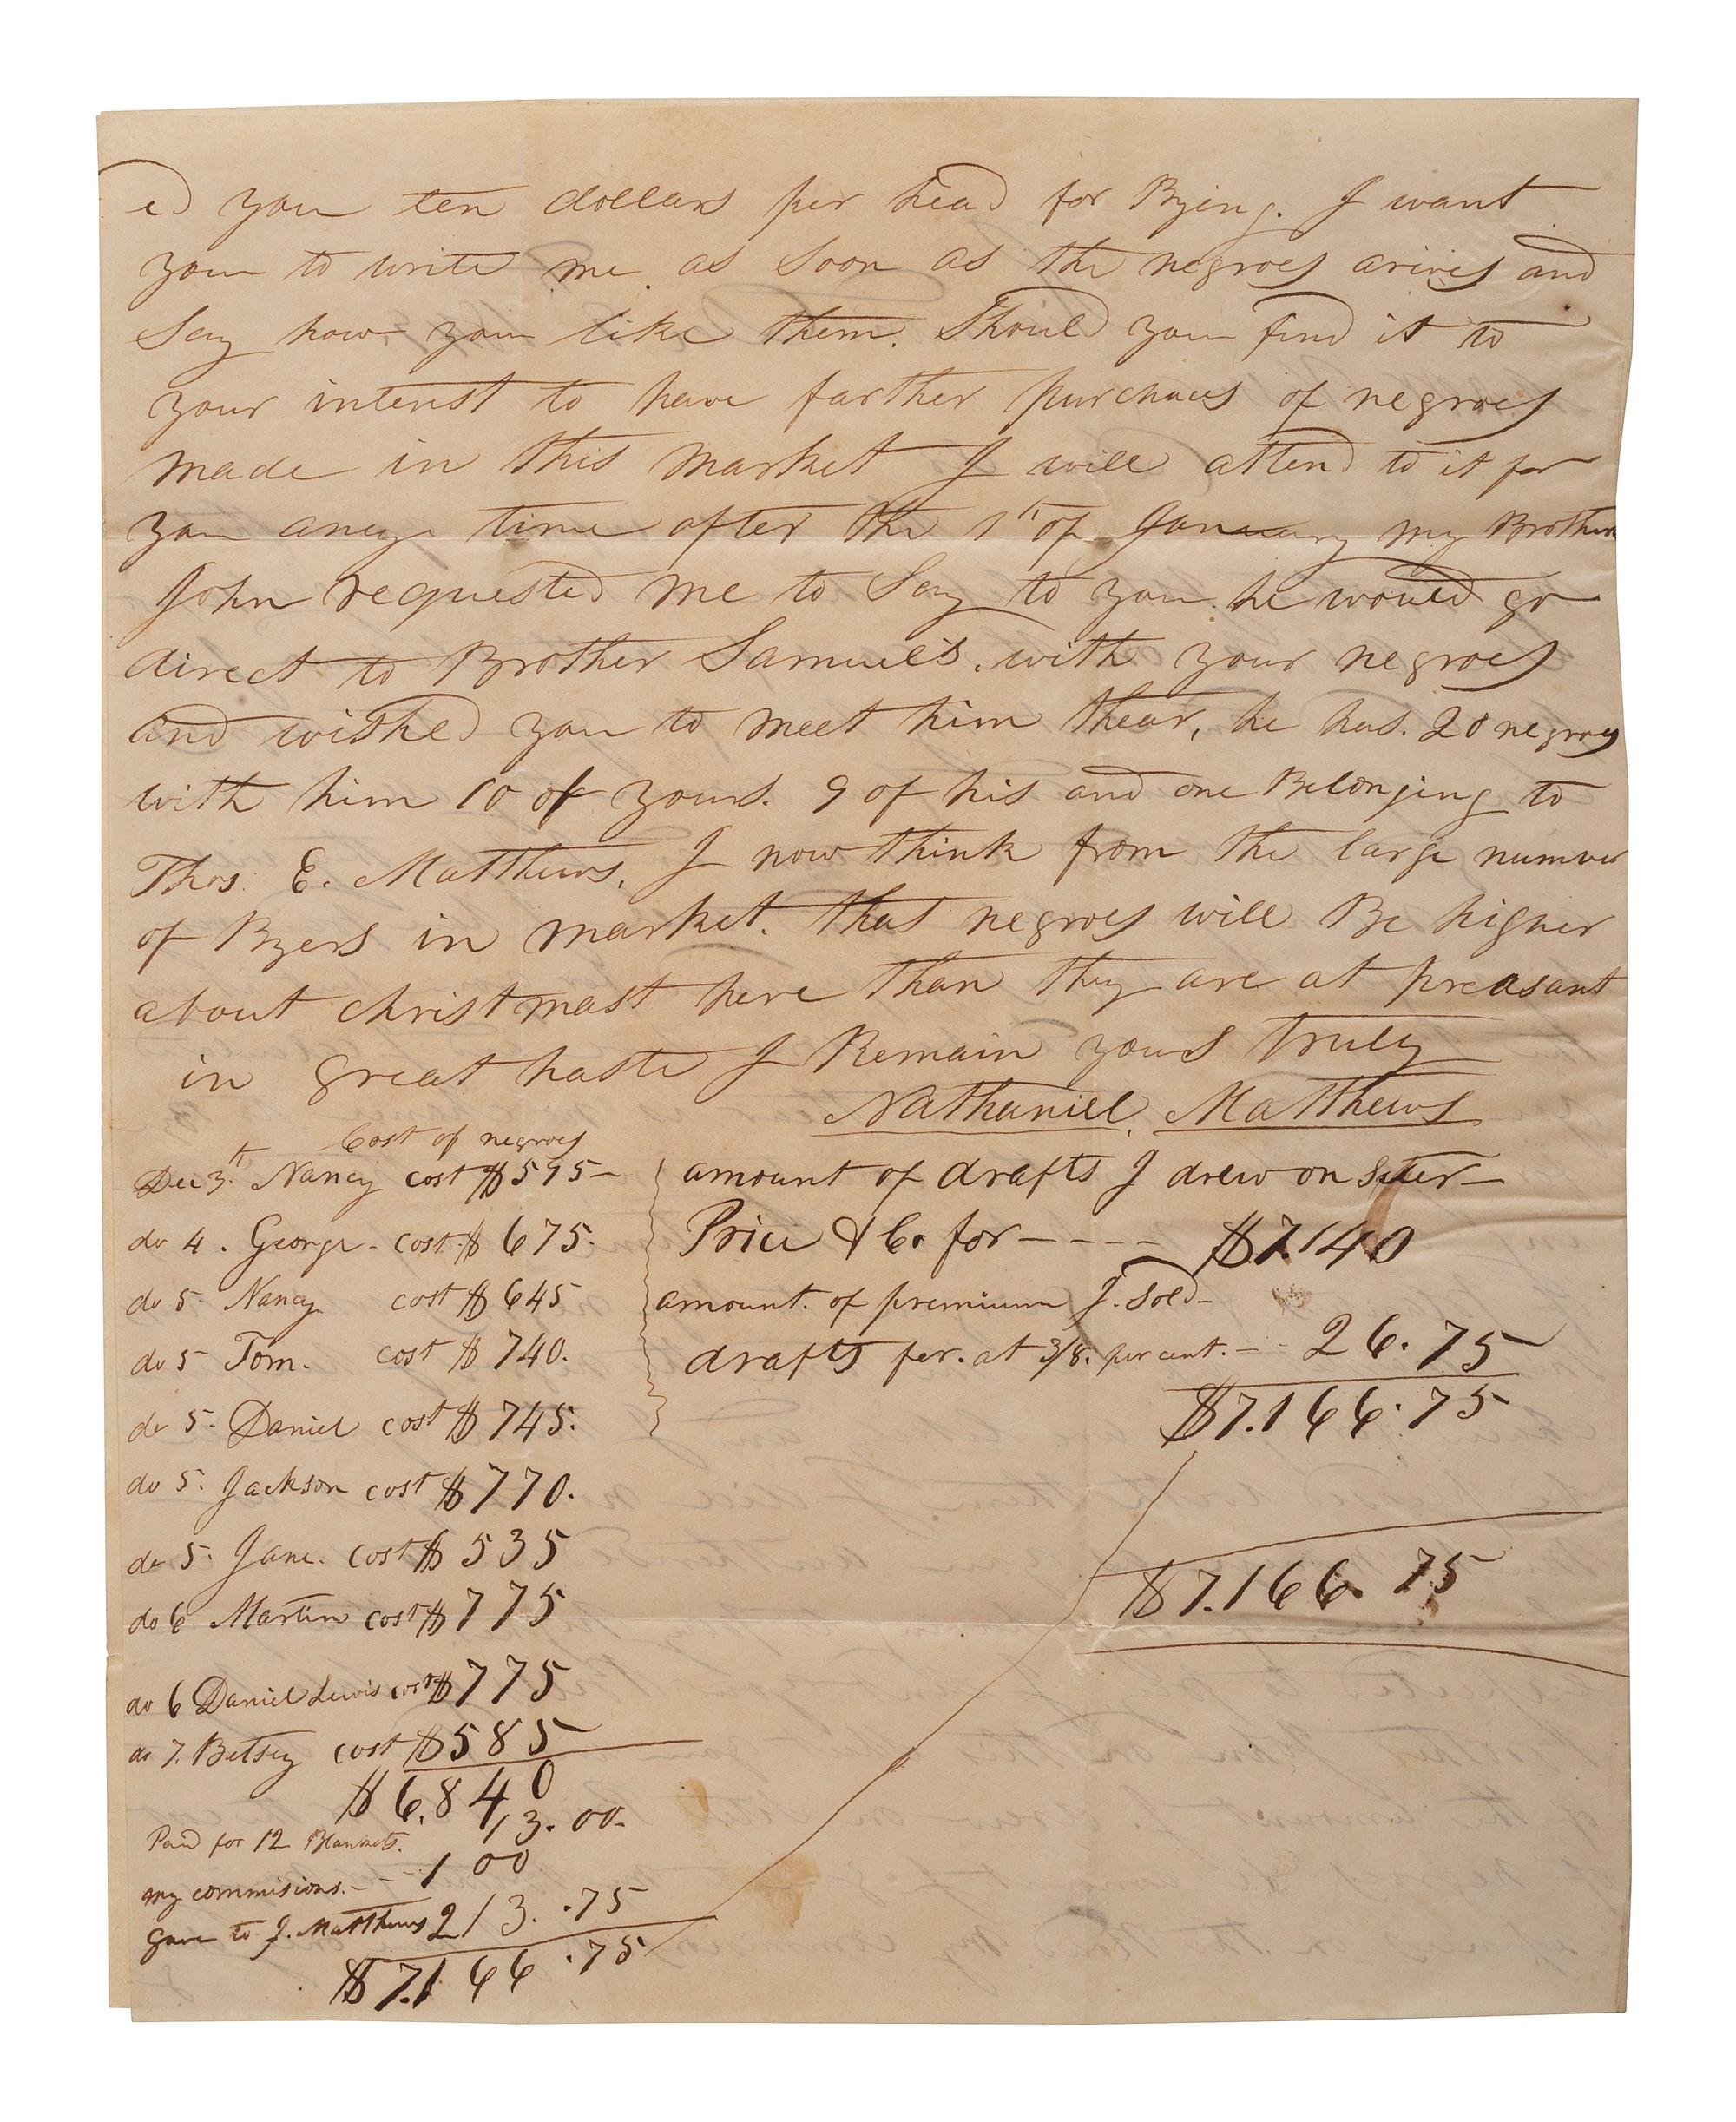 ed you ten dollars per head for Bying. I want
you to write me as soon as the negroes arives and
Say how you like them. Should you find it to
your interest to have farther purchaces of negroes
made in this market I will attend to it for
you aney time after the 1st of January my Brother
John requested me to Say to you he would go
direct to Brother Samuels. with your negroes
and wished you to meet him thear, he has. 20 negroes
with him 10 of yours. 9 of his and one Belonging to
Thos. E. Matthews. I now think from the large number
of Byers in market. that negroes will Be higher
about christmast here than they are at preasant
in great haste I Remain yours truly
Nathaniel Matthews
Cost of negroes
Dec 3th Nancy cost $595-
do 4. George- cost $675.
do 5. Nancy cost $645
do 5 Tom. cost $740.
do 5. Daniel cost $745.
do 5. Jackson cost $770.
do 5. Jane. cost $535
do 6 Martin cost $775
do 6 Daniel Lewis cost $775
do 7. Betsey cost $585
$6,840
Paid for 12 Blankets. 13.00-
my commisions.-- 1 00
Gave to J. Matthews 213..75
$7.166.75
amount of drafts I drew on
Price & Co for ---- $7.140
amount. of premium I. Sold-
drafts for. at 3/8. per cent.-- 26.75
$7.166.75
$7.166.75